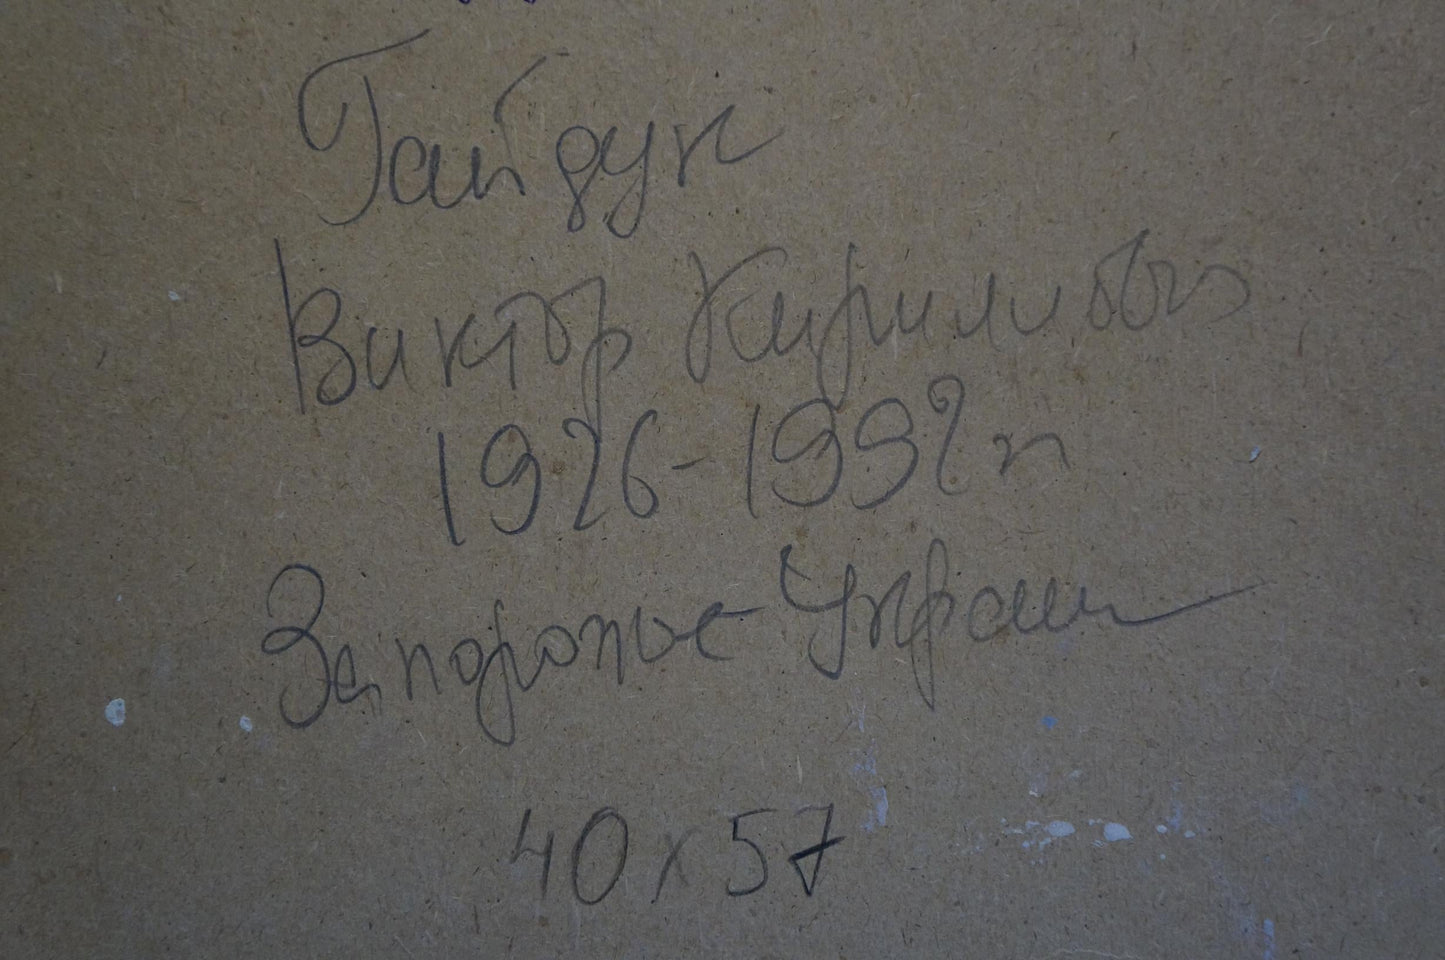 Гайдук
Виктор Кирилович
1926-1992 г
Запорожье Украина
40 x 57